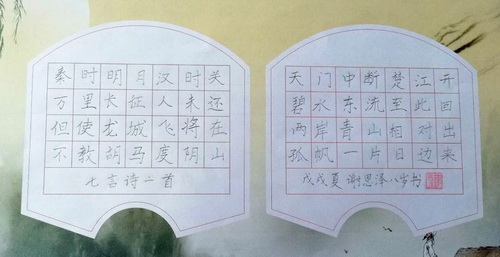 秦时明月汉时关
万里长征人未还
但使龙城飞将在
不教胡马度阴山
七言诗二首
天门中断楚江开
碧水东流至此回
两岸青山相对出
孤帆一片日边来
戊戌夏 谢思泽八岁书